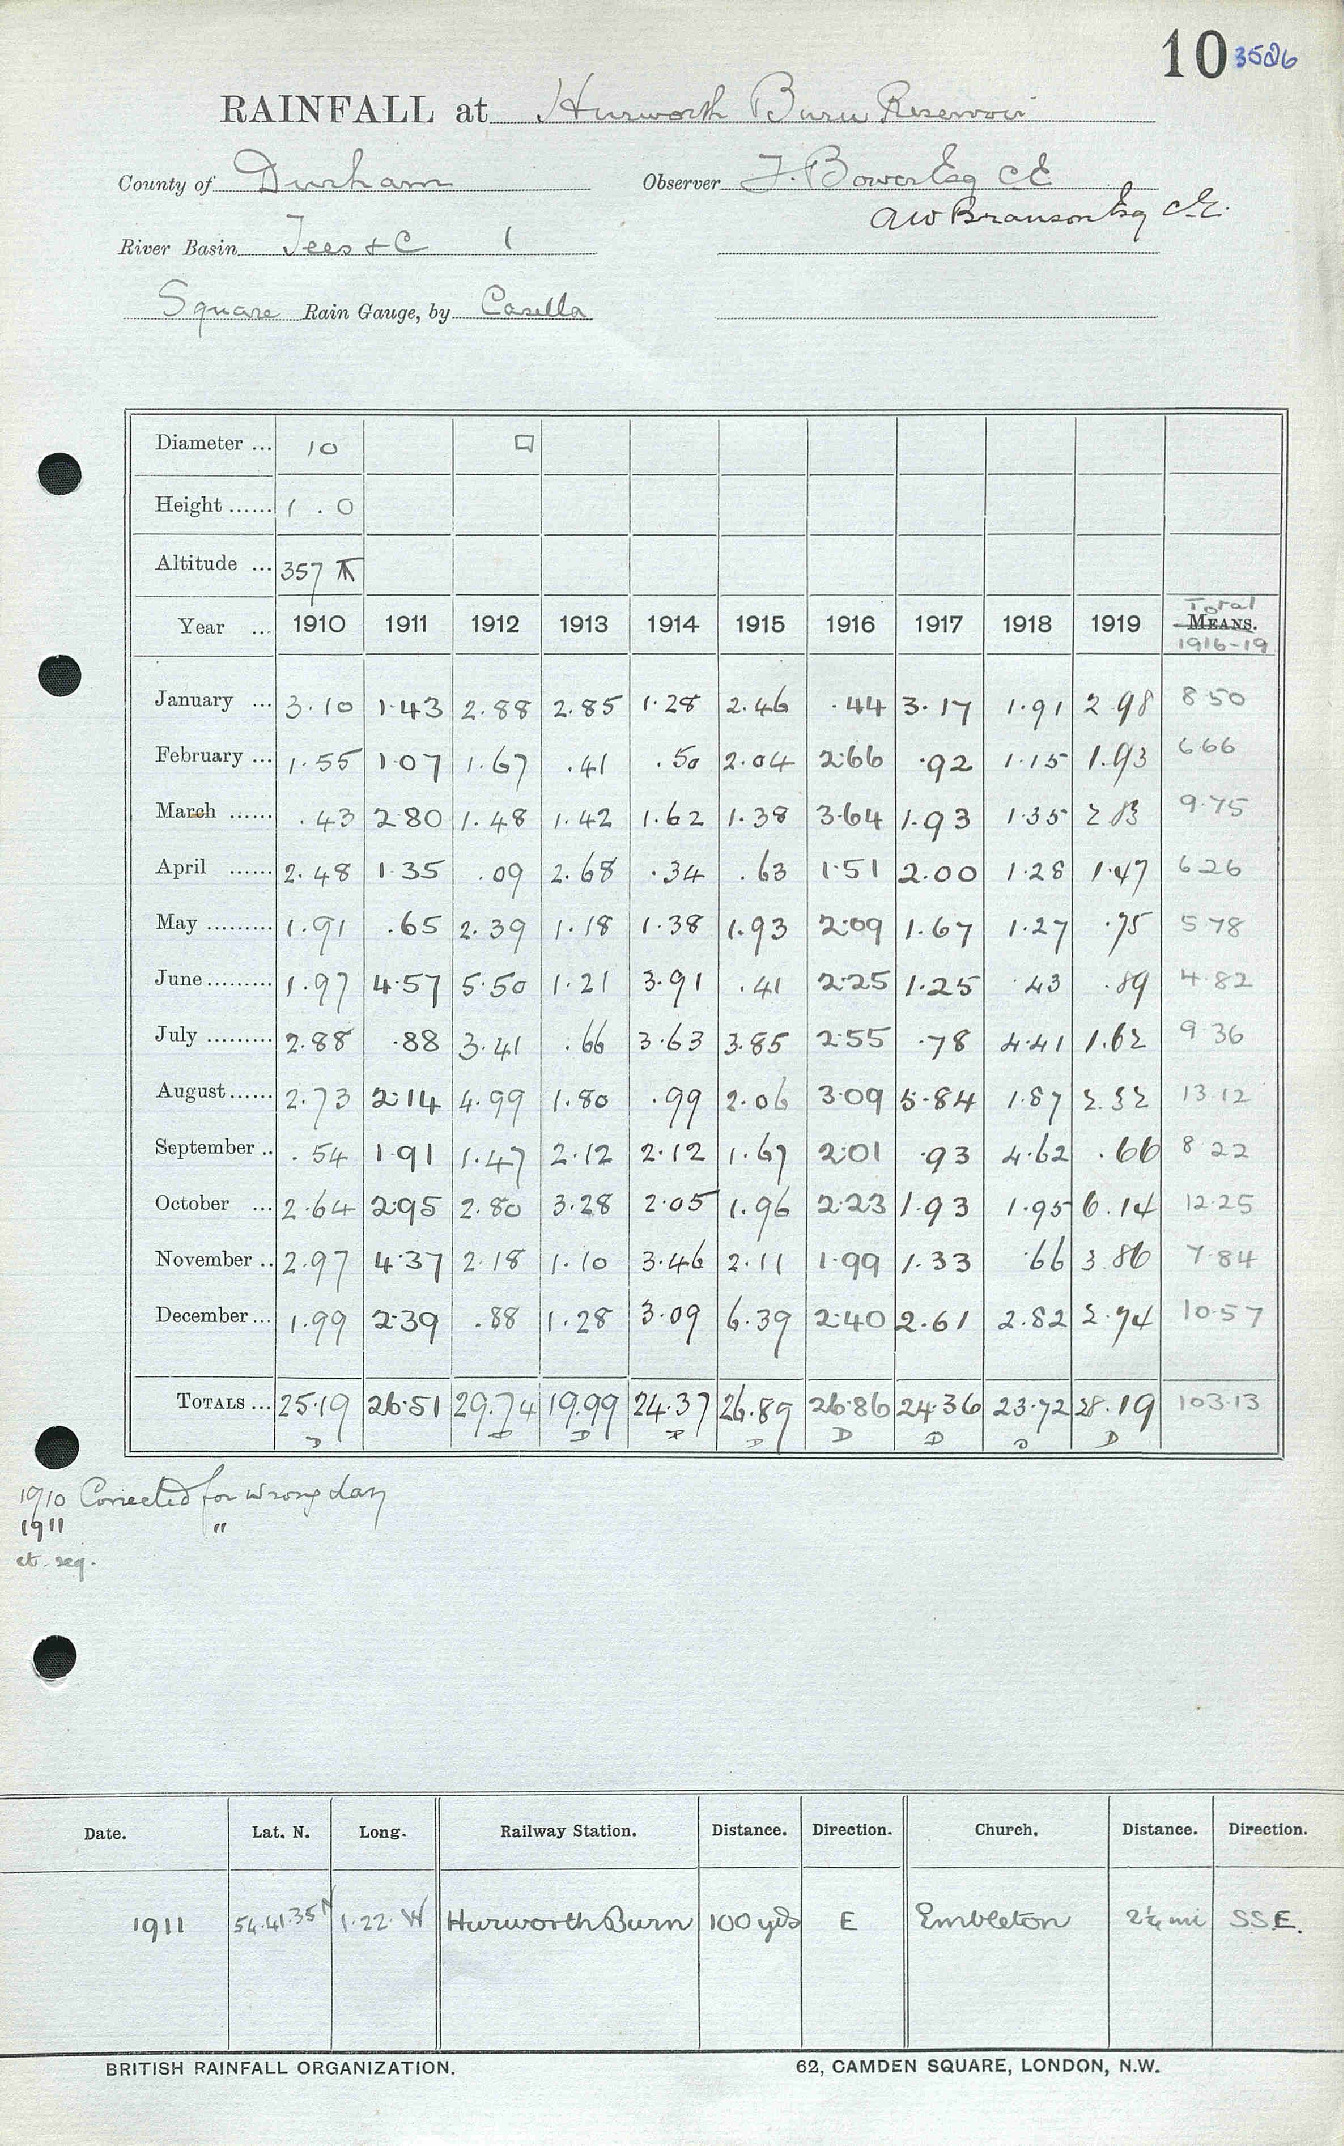 10 3526
RAINFALL at Hurworth Burn Reservoir
County of Durham Observer F. Bower Esq CE
AW Branson Esq CE.
River Basin Tees + C 1
Square Rain Gauge, by Casella
Diameter ... 10 □
Height ...... 1 . 0
Altitude ... 357 T
Year ... 1910 1911 1912 1913 1914 1915 1916 1917 1918 1919 Total MEANS. 1916-19
January ... 3.10 1.43 2.88 2.85 1.28 2.46 .44 3.17 1.91 2.98 8 50
February ... 1.55 1.07 1.67 .41 .50 2.04 2.66 .92 1.15 1.93 6 66
March ...... .43 2.80 1.48 1.42 1.62 1.38 3.64 1.93 1.35 2.83 9.75
April ...... 2.48 1.35 .09 2.68 .34 .63 1.51 2.00 1.28 1.47 6 26
May ......... 1.91 .65 2.39 1.18 1.38 1.93 2.09 1.67 1.27 .75 5 78
June ......... 1.97 4.57 5.50 1.21 3.91 .41 2.25 1.25 .43 .89 4.82
July ......... 2.88 .88 3.41 .66 3.63 3.85 2.55 .78 4.41 1.62 9 36
August ...... 2.73 2.14 4.99 1.80 .99 2.06 3.09 5.84 1.87 2.32 13.12
September .. .54 1.91 1.47 2.12 2.12 1.67 2.01 .93 4.62 .66 8 22
October ... 2.64 2.95 2.80 3.28 2.05 1.96 2.23 1.93 1.95 6.14 12.25
November .. 2.97 4.37 2.18 1.10 3.46 2.11 1.99 1.33 .66 3.86 7.84
December ... 1.99 2.39 .88 1.28 3.09 6.39 2.40 2.61 2.82 2.74 10.57
TOTALS ... 25.19 26.51 29.74 19.99 24.37 26.89 26.86 24.36 23.72 28.19 103.13
D D D D D D D D D
1910 Corrected for wrong day
1911 "
et. seq.
Date. Lat. N. Long. Railway Station. Distance. Direction. Church. Distance. Direction.
1911 54.41.35 N 1.22.W Hurworth Burn 100 yds E Embleton 2¼ mi SSE.
BRITISH RAINFALL ORGANIZATION. 62, CAMDEN SQUARE, LONDON, N.W.